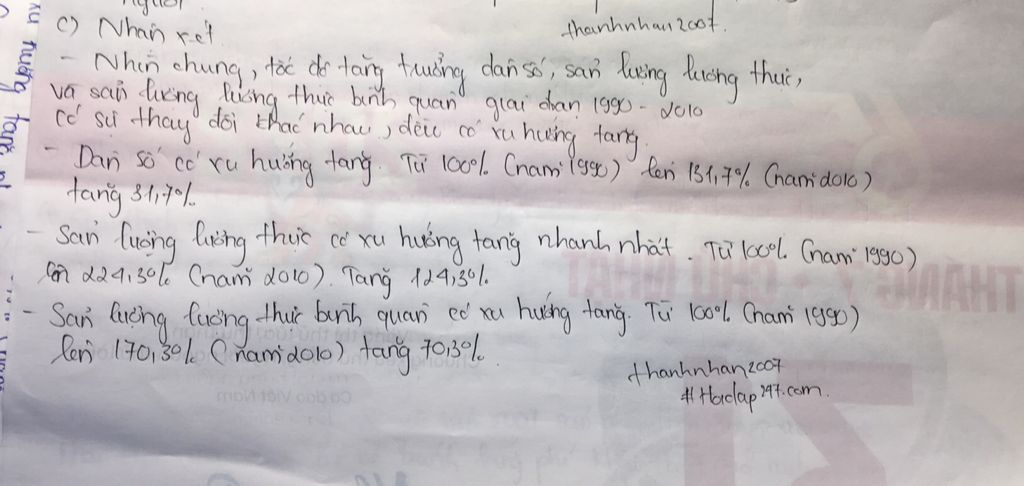 c) Nhận xét
thanhnhan2007.
- Nhìn chung, tốc độ tăng trưởng dân số, sản lượng lương thực,
và sản lượng lương thực bình quân giai đoạn 1990 - 2010
có sự thay đổi khác nhau, đều có xu hướng tăng.
- Dân số có xu hướng tăng. Từ 100% (năm 1990) lên 131,7% (năm 2010)
tăng 31,7%.
- Sản lượng lương thực có xu hướng tăng nhanh nhất. Từ 100% (năm 1990)
lên 224,3% (năm 2010). Tăng 124,3%.
- Sản lượng lương thực bình quân có xu hướng tăng. Từ 100% (năm 1990)
lên 170,3% (năm 2010) tăng 70,3%.
thanhnhan2007
# Hoidap247.com.
xu hướng tăng